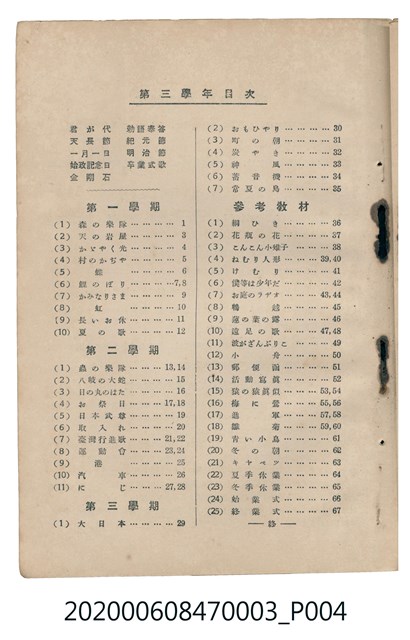 第三學年目次
君が代 勅語奉答
天長節 紀元節
一月一日 明治節
始政記念日 卒業式歌
金剛石
第一學期
(1) 森の樂隊 ………… 1
(2) 天の岩屋 ………… 3
(3) かゞやく光 ………… 4
(4) 村のかぢや ………… 5
(5) ………… 6
(6) 鯉のぼり ………… 7,8
(7) かみなりさま ………… 9
(8) 虹 ………… 10
(9) 長いお休 ………… 11
(10) 夏の歌 ………… 12
第二學期
(1) 蟲の樂隊 ………… 13,14
(2) 八岐の大蛇 ………… 15
(3) 日の丸のはた ………… 16
(4) お祭日 ………… 17,18
(5) 日本武尊 ………… 19
(6) 取入れ ………… 20
(7) 臺灣行進歌 ………… 21,22
(8) 運動會 ………… 23,24
(9) 港 ………… 25
(10) 汽車 ………… 26
(11) にじ ………… 27,28
第三學期
(1) 大日本 ………… 29
(2) おもひやり ………… 30
(3) 町の朝 ………… 31
(4) 炭やき ………… 32
(5) 神風 ………… 33
(6) 蓄音機 ………… 34
(7) 常夏の島 ………… 35
參考敎材
(1) 綱ひき ………… 36
(2) 花説の花 ………… 37
(3) こんこん小雉子 ………… 38
(4) ねむり人形 ………… 39,40
(5) けむり ………… 41
(6) 僕等は少年だ ………… 42
(7) お庭のラヂオ ………… 43,44
(8) 鵯越 ………… 45
(9) 蓮の葉の露 ………… 46
(10) 遠足の歌 ………… 47,48
(11) 波がざんぶりこ ………… 49
(12) 小舟 ………… 50
(13) 郵便函 ………… 51
(14) 活動寫眞 ………… 52
(15) 猿の猿眞似 ………… 53,54
(16) 梅に鶯 ………… 55,56
(17) 進軍 ………… 57,58
(18) 雛菊 ………… 59,60
(19) 青い小鳥 ………… 61
(20) 冬の朝 ………… 62
(21) キャベツ ………… 63
(22) 夏季休業 ………… 64
(23) 冬季休業 ………… 65
(24) 始業式 ………… 66
(25) 終業式 ………… 67
——終——
202000608470003_P004